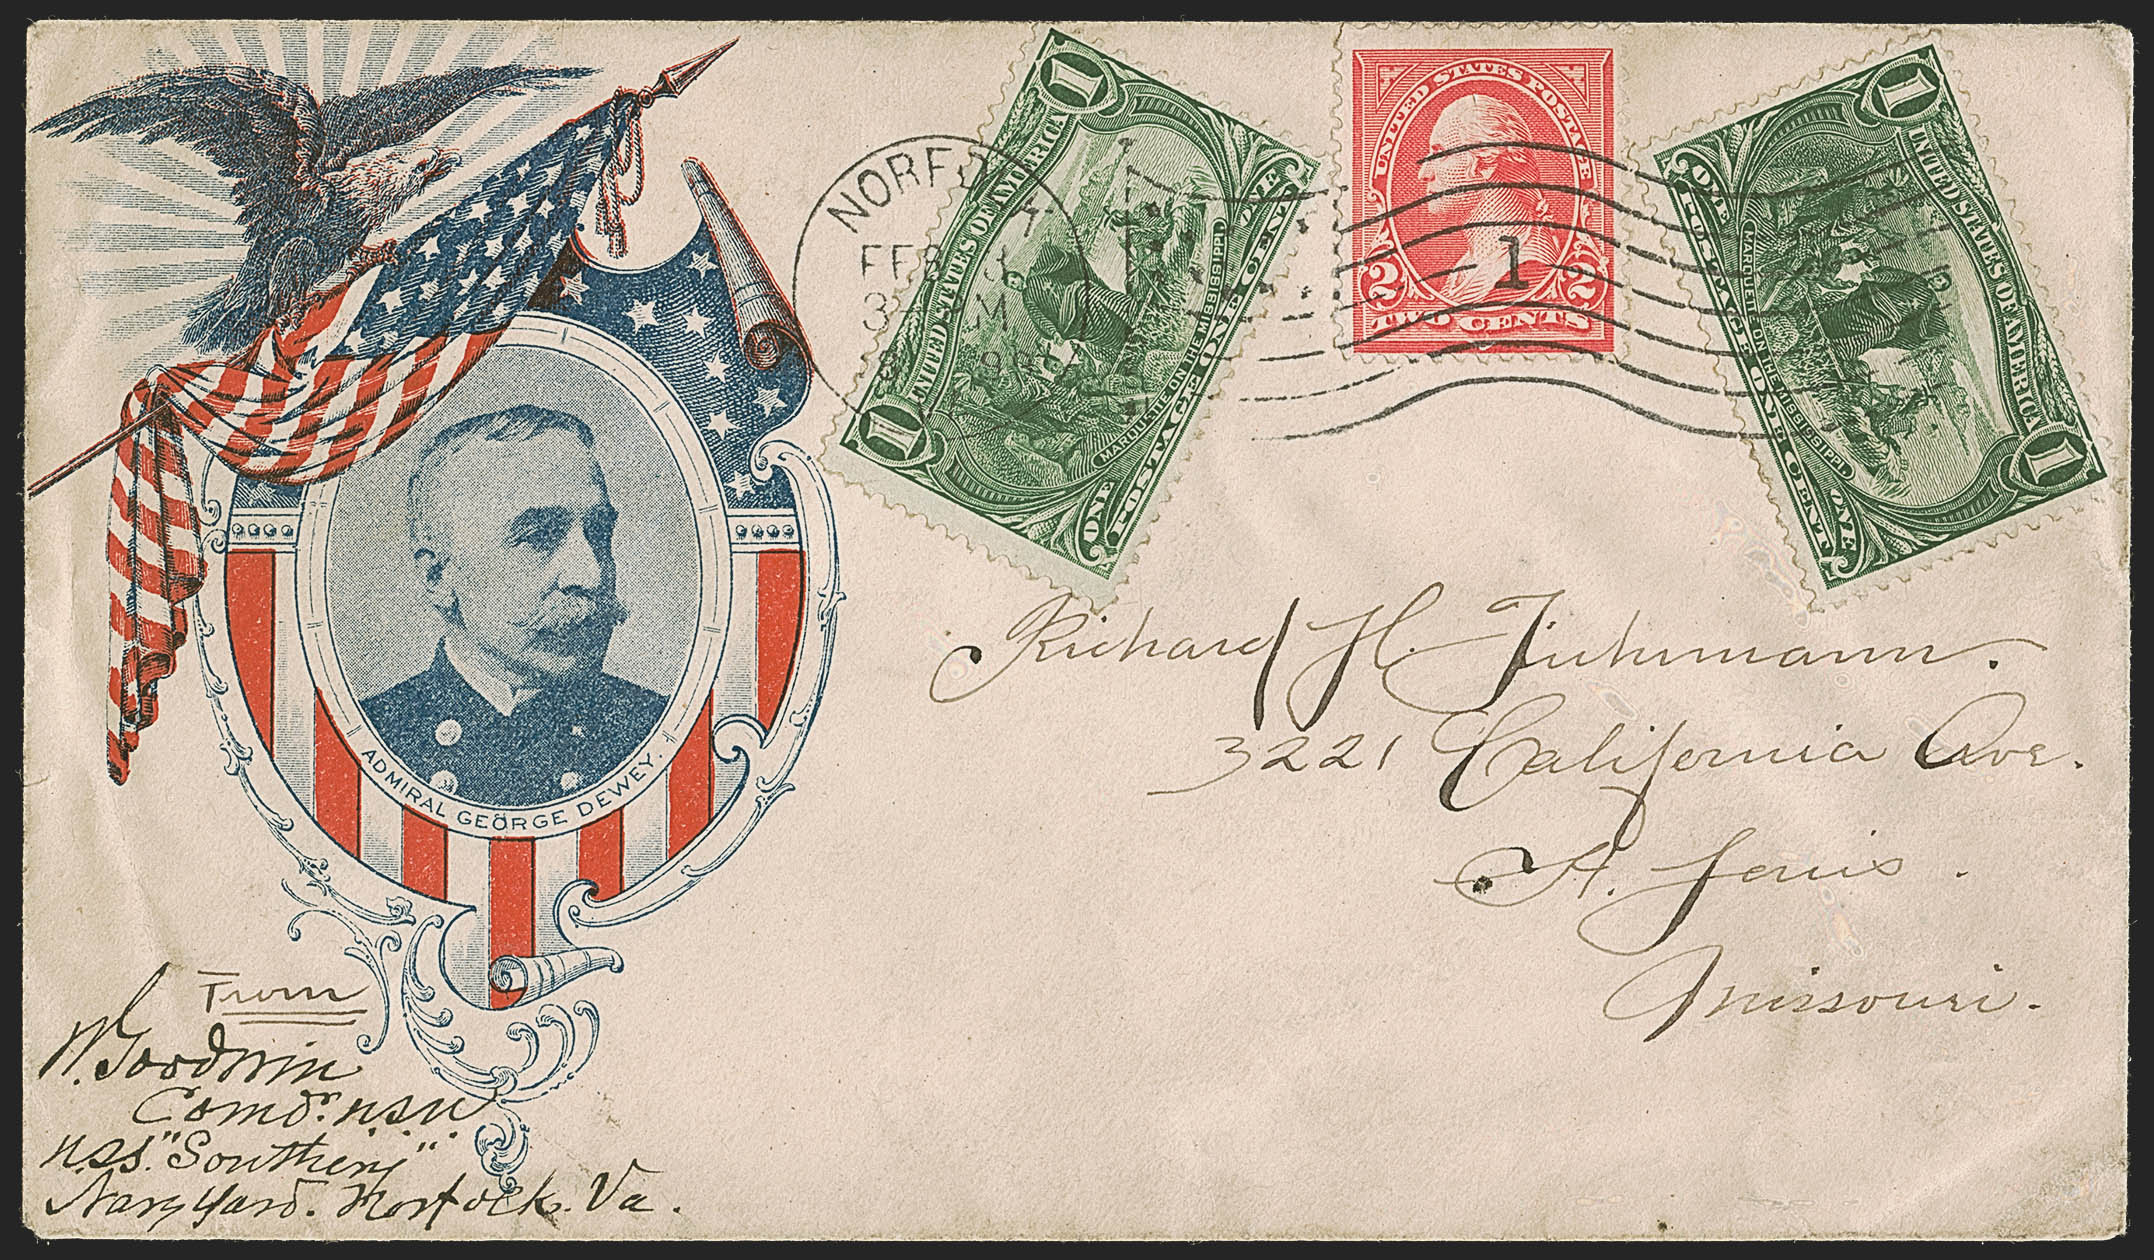 ADMIRAL GEORGE DEWEY.
NORFO
FEB
3 M
98
1 UNITED STATES OF AMERICA 1
MARQUETTE ON THE MISSISSIPPI.
ONE POSTAGE ONE CENT
UNITED STATES POSTAGE
2 2
TWO CENTS
1
1 UNITED STATES OF AMERICA 1
MARQUETTE ON THE MISSISSIPPI.
ONE POSTAGE ONE CENT
Richard H.
3221 California Ave.
St. Louis.
Missouri.
From
W. Goodwin
Comdr. U.S.N.
U.S.S. "Southery"
Navy Yard. Norfolk. Va.